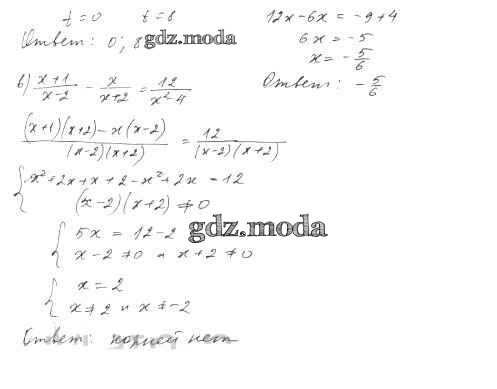 t = 0    t = 8
Ответ: 0; 8
gdz.moda
12x - 6x = -9 + 4
6x = -5
x = -5/6
Ответ: -5/6
в) (x+1)/(x-2) - x/(x+2) = 12/(x²-4)
((x+1)(x+2) - x(x-2))/((x-2)(x+2)) = 12/((x-2)(x+2))
{ x² + 2x + x + 2 - x² + 2x = 12
(x-2)(x+2) ≠ 0
gdz.moda
{ 5x = 12 - 2
x - 2 ≠ 0 и x + 2 ≠ 0
{ x = 2
x ≠ 2 и x ≠ -2
Ответ: корней нет